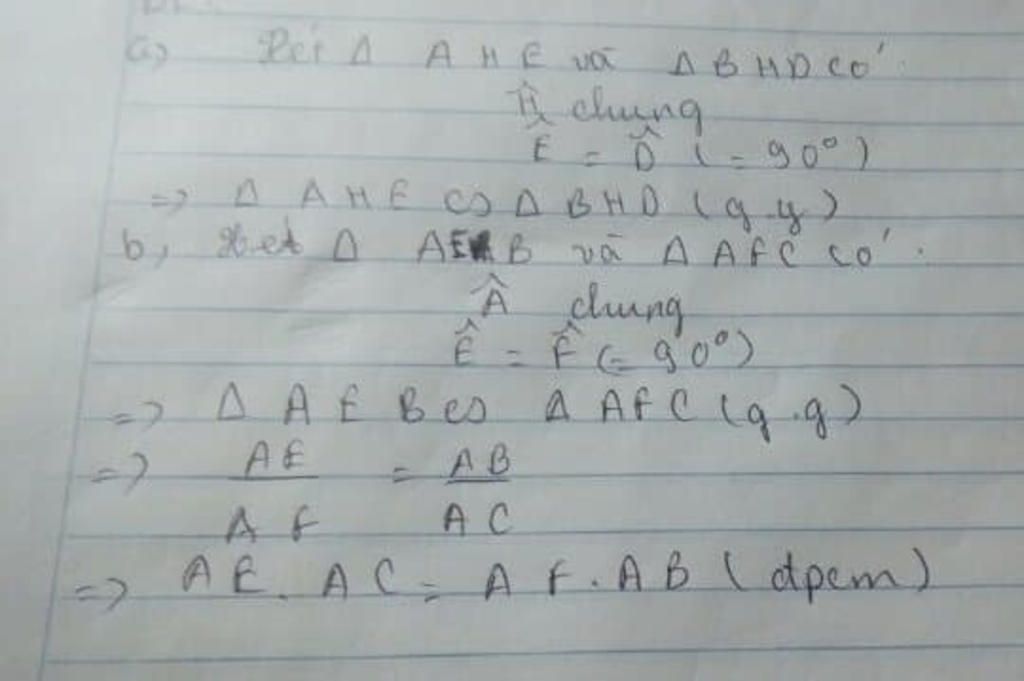 a) Xét Δ AHE và ΔBHD có:
Ĥ chung
Ê = D̂ (=90°)
=> Δ AHE ∽ Δ BHD (g.g)
b, Xét Δ AEB và Δ AFC có:
Â chung
Ê = F̂ (= 90°)
=> Δ AEB ∽ Δ AFC (g.g)
=> AE/AF = AB/AC
=> AE. AC = AF. AB (đpcm)